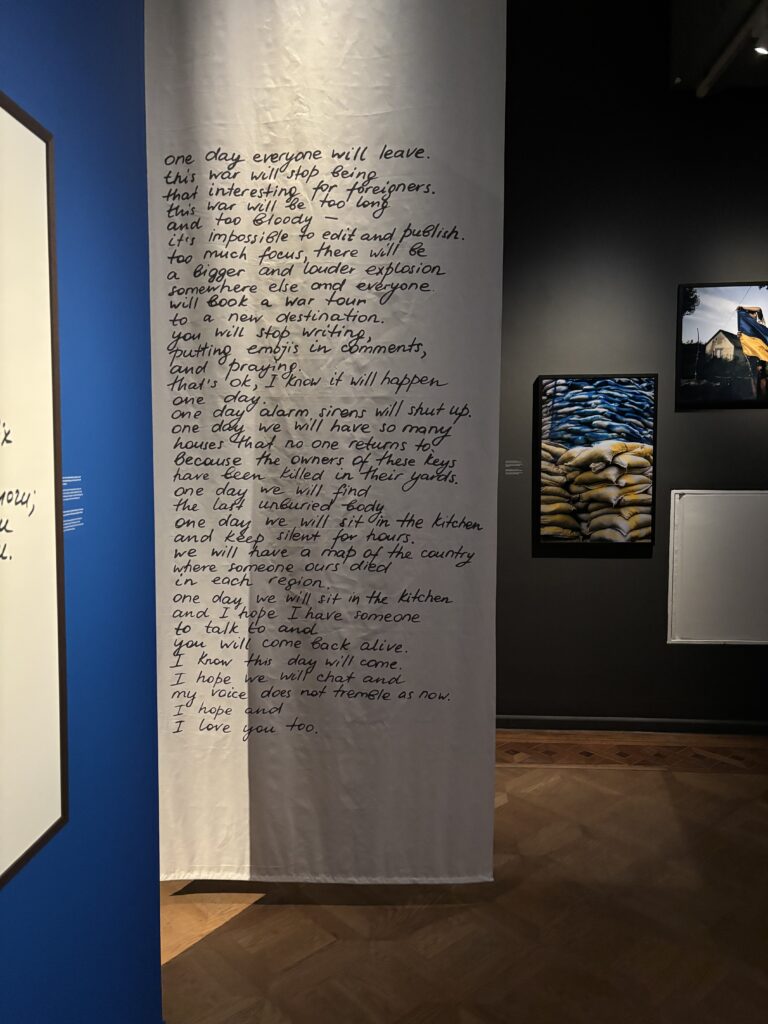 one day everyone will leave.
this war will stop being
that interesting for foreigners.
this war will be too long
and too bloody —
it's impossible to edit and publish.
too much focus, there will be
a bigger and louder explosion
somewhere else and everyone
will book a war tour
to a new destination.
you will stop writing,
putting emojis in comments,
and praying.
that's ok, I know it will happen
one day.
one day alarm sirens will shut up.
one day we will have so many
houses that no one returns to.
because the owners of these keys
have been killed in their yards.
one day we will find
the last unburied body
one day we will sit in the kitchen
and keep silent for hours.
we will have a map of the country
where someone ours died
in each region.
one day we will sit in the kitchen
and I hope I have someone
to talk to and
you will come back alive.
I know this day will come.
I hope we will chat and
my voice does not tremble as now.
I hope and
I love you too.